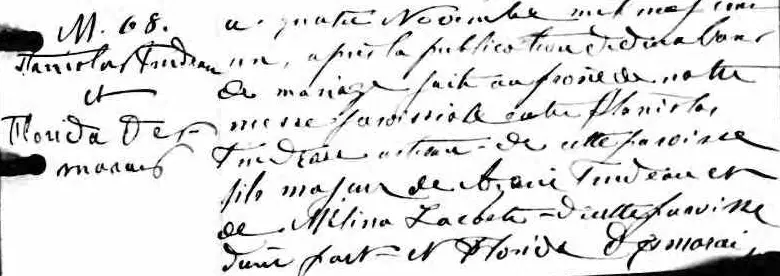 M. 68.
Stanislas Trudeau
et
Florida Des-
marais
quatre Novembre mil neuf cent
un, après la publication de deux bans
de mariage faite au prône de notre
messe paroissiale entre Stanislas
Trudeau de cette paroisse
fils majeur de Trudeau et
de Mélina Lacoste de cette paroisse
d'une part et Florida Desmarais,